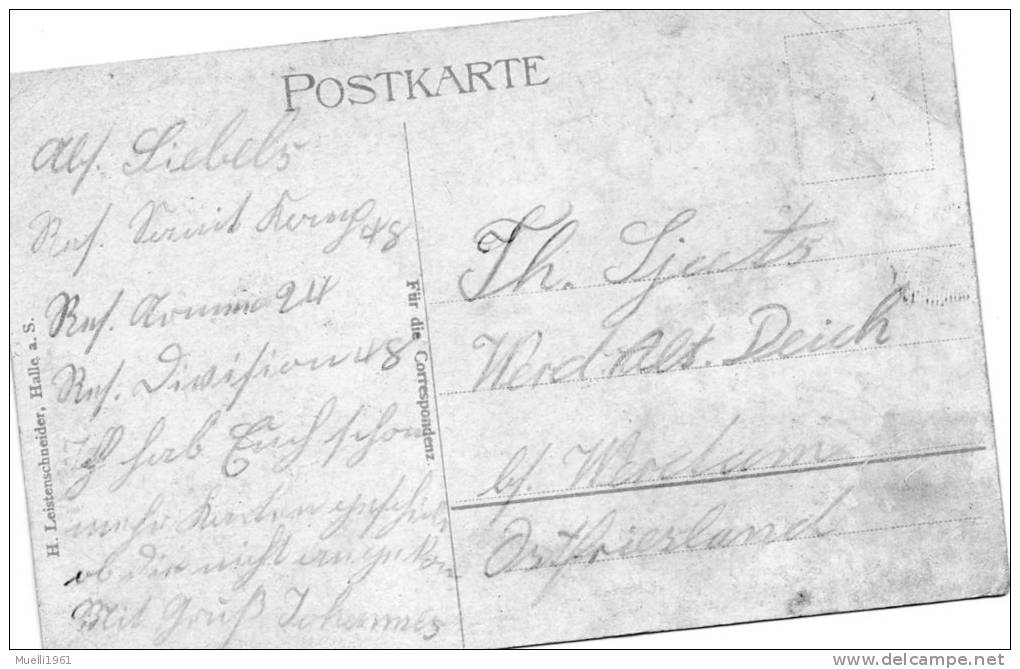 POSTKARTE
Abs. Siebels
Res. Sanit Komp 48
Res. Armee 24
Res. Division 48
Ich hab Euch schon
mehr Karten geschickt
ob die nicht angekom
Mit Gruß Johannes
H. Leistenschneider, Halle a. S.
Für die Correspondenz.
Th. Sjuts
Werd Alt. Deich
bs. Werdum
Ostfriesland
Muelli1961
www.delcampe.net